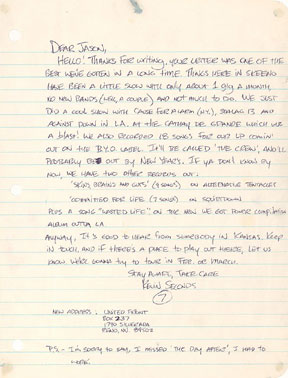 DEAR JASON,
HELLO! THANKS FOR WRITING, YOUR LETTER WAS ONE OF THE
BEST WE'VE GOTTEN IN A LONG TIME. THINGS HERE IN SKEENO
HAVE BEEN A LITTLE SLOW WITH ONLY ABOUT 1 GIG A MONTH,
NO NEW BANDS (WELL, A COUPLE) AND NOT MUCH TO DO. WE JUST
DID A COOL SHOW WITH CAUSE FOR ALARM (N.Y.), STALAG 13 AND
AGAINST DOWN IN L.A. AT THE CATHAY DE GRANDE WHICH WAS
A BLAST! WE ALSO RECORDED 18 SONGS FOR OUR LP COMIN'
OUT ON THE B.Y.O. LABEL. IT'LL BE CALLED 'THE CREW', AND'LL
PROBABLY BE OUT BY NEW YEARS. IF YA DON'T KNOW BY
NOW, WE HAVE TWO OTHER RECORDS OUT:
'SKINS, BRAINS AND GUTS' (9 SONGS) ON ALTERNATIVE TENTACLES
'COMMITTED FOR LIFE' (7 SONGS) ON SQUIRTDOWN
PLUS A SONG "WASTED LIFE" ON THE NEW WE GOT POWER COMPILATION
ALBUM OUTTA L.A.
ANYWAY, IT'S GOOD TO HEAR FROM SOMEBODY IN KANSAS. KEEP
IN TOUCH, AND IF THERE'S A PLACE TO PLAY OUT THERE, LET US
KNOW. WE'RE GONNA TRY TO TOUR IN FEB. OR MARCH.
STAY AWARE, TAKE CARE
KEVIN SECONDS
7
NEW ADDRESS: UNITED FRONT
BOX 237
1790
RENO, NV 89502
P.S. - I'M SORRY TO SAY, I MISSED 'THE DAY AFTER', I HAD TO
WORK.